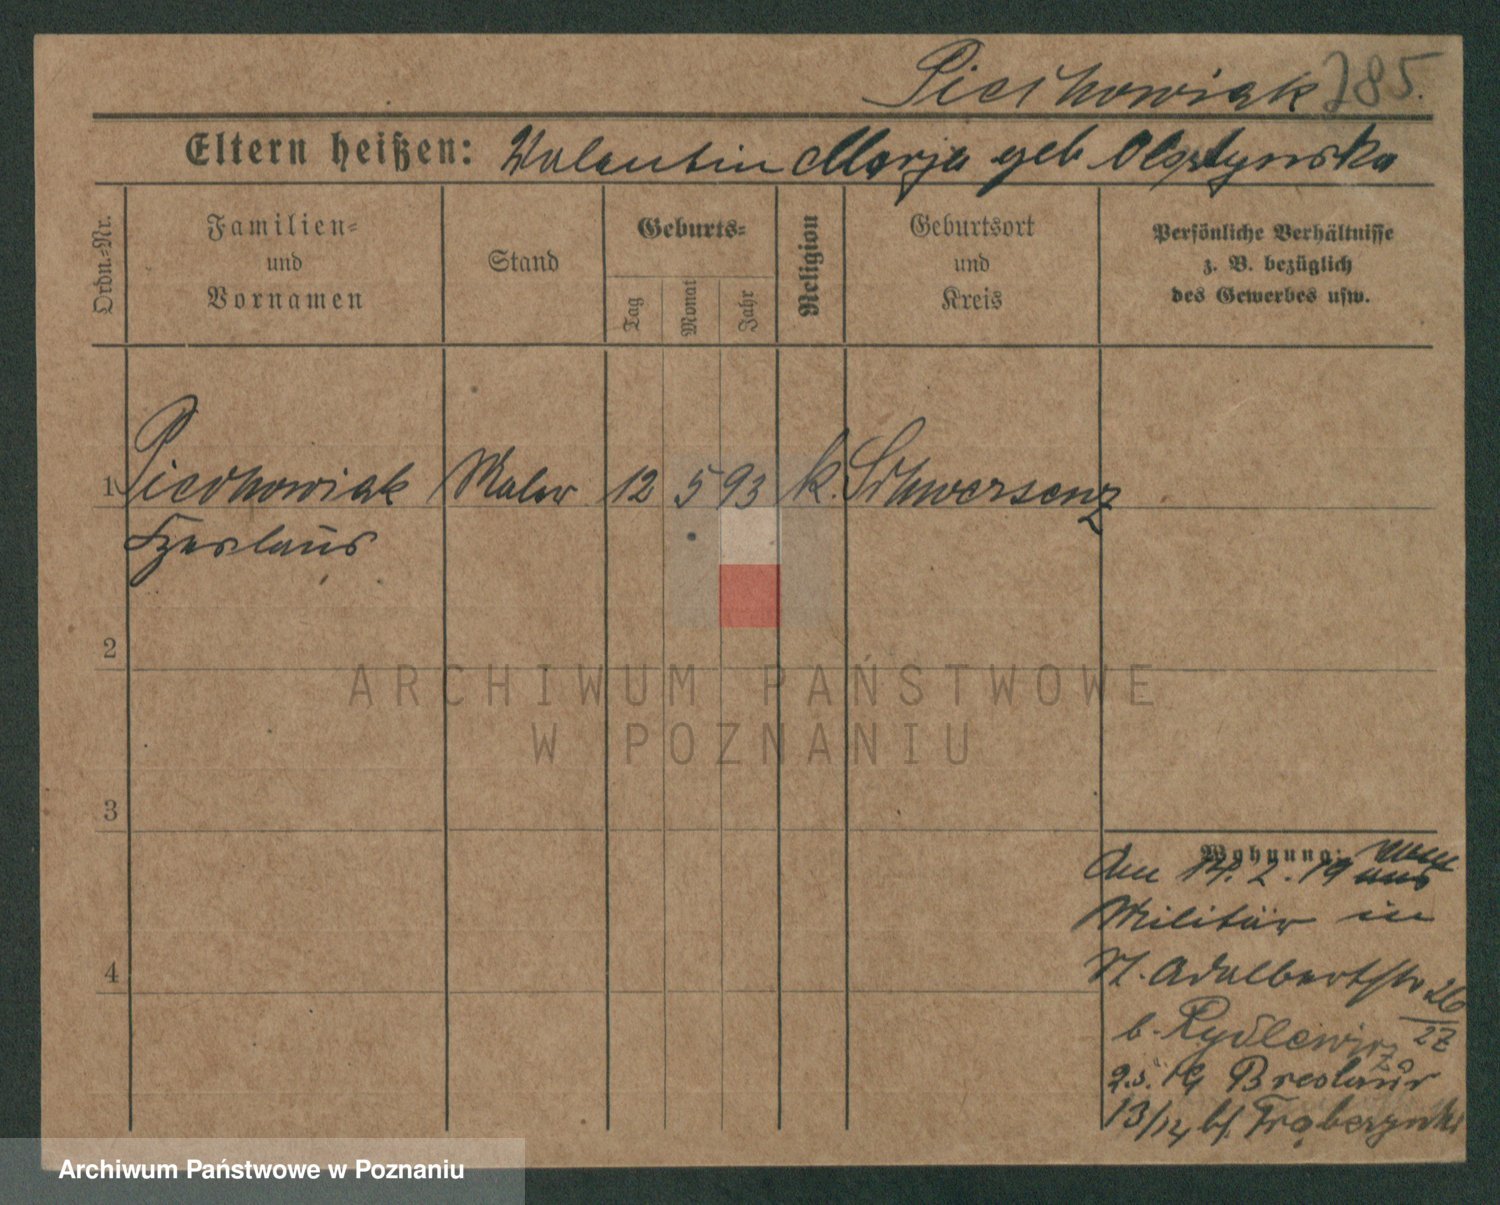 Piechowiak 285.
Eltern heißen: Valentin Marja geb Olsztynska
Ordn.-Nr.
Familien-
und
Vornamen
Stand
Geburts-
Tag
Monat
Jahr
Religion
Geburtsort
und
Kreis
Persönliche Verhältnisse
z. B. bezüglich
des Gewerbes usw.
1 Piechowiak Maler 12 5 93 k. Schwersenz
Czeslaus
2
3
4
Wohnung:
Am 14.2.19 vom
Militär in
St. Adalbertstr 26
/22
b. Rydlewicz
2.5.19 Breslauer
13/14 bei Trąbczynski
ARCHIWUM PAŃSTWOWE
W POZNANIU
Archiwum Państwowe w Poznaniu